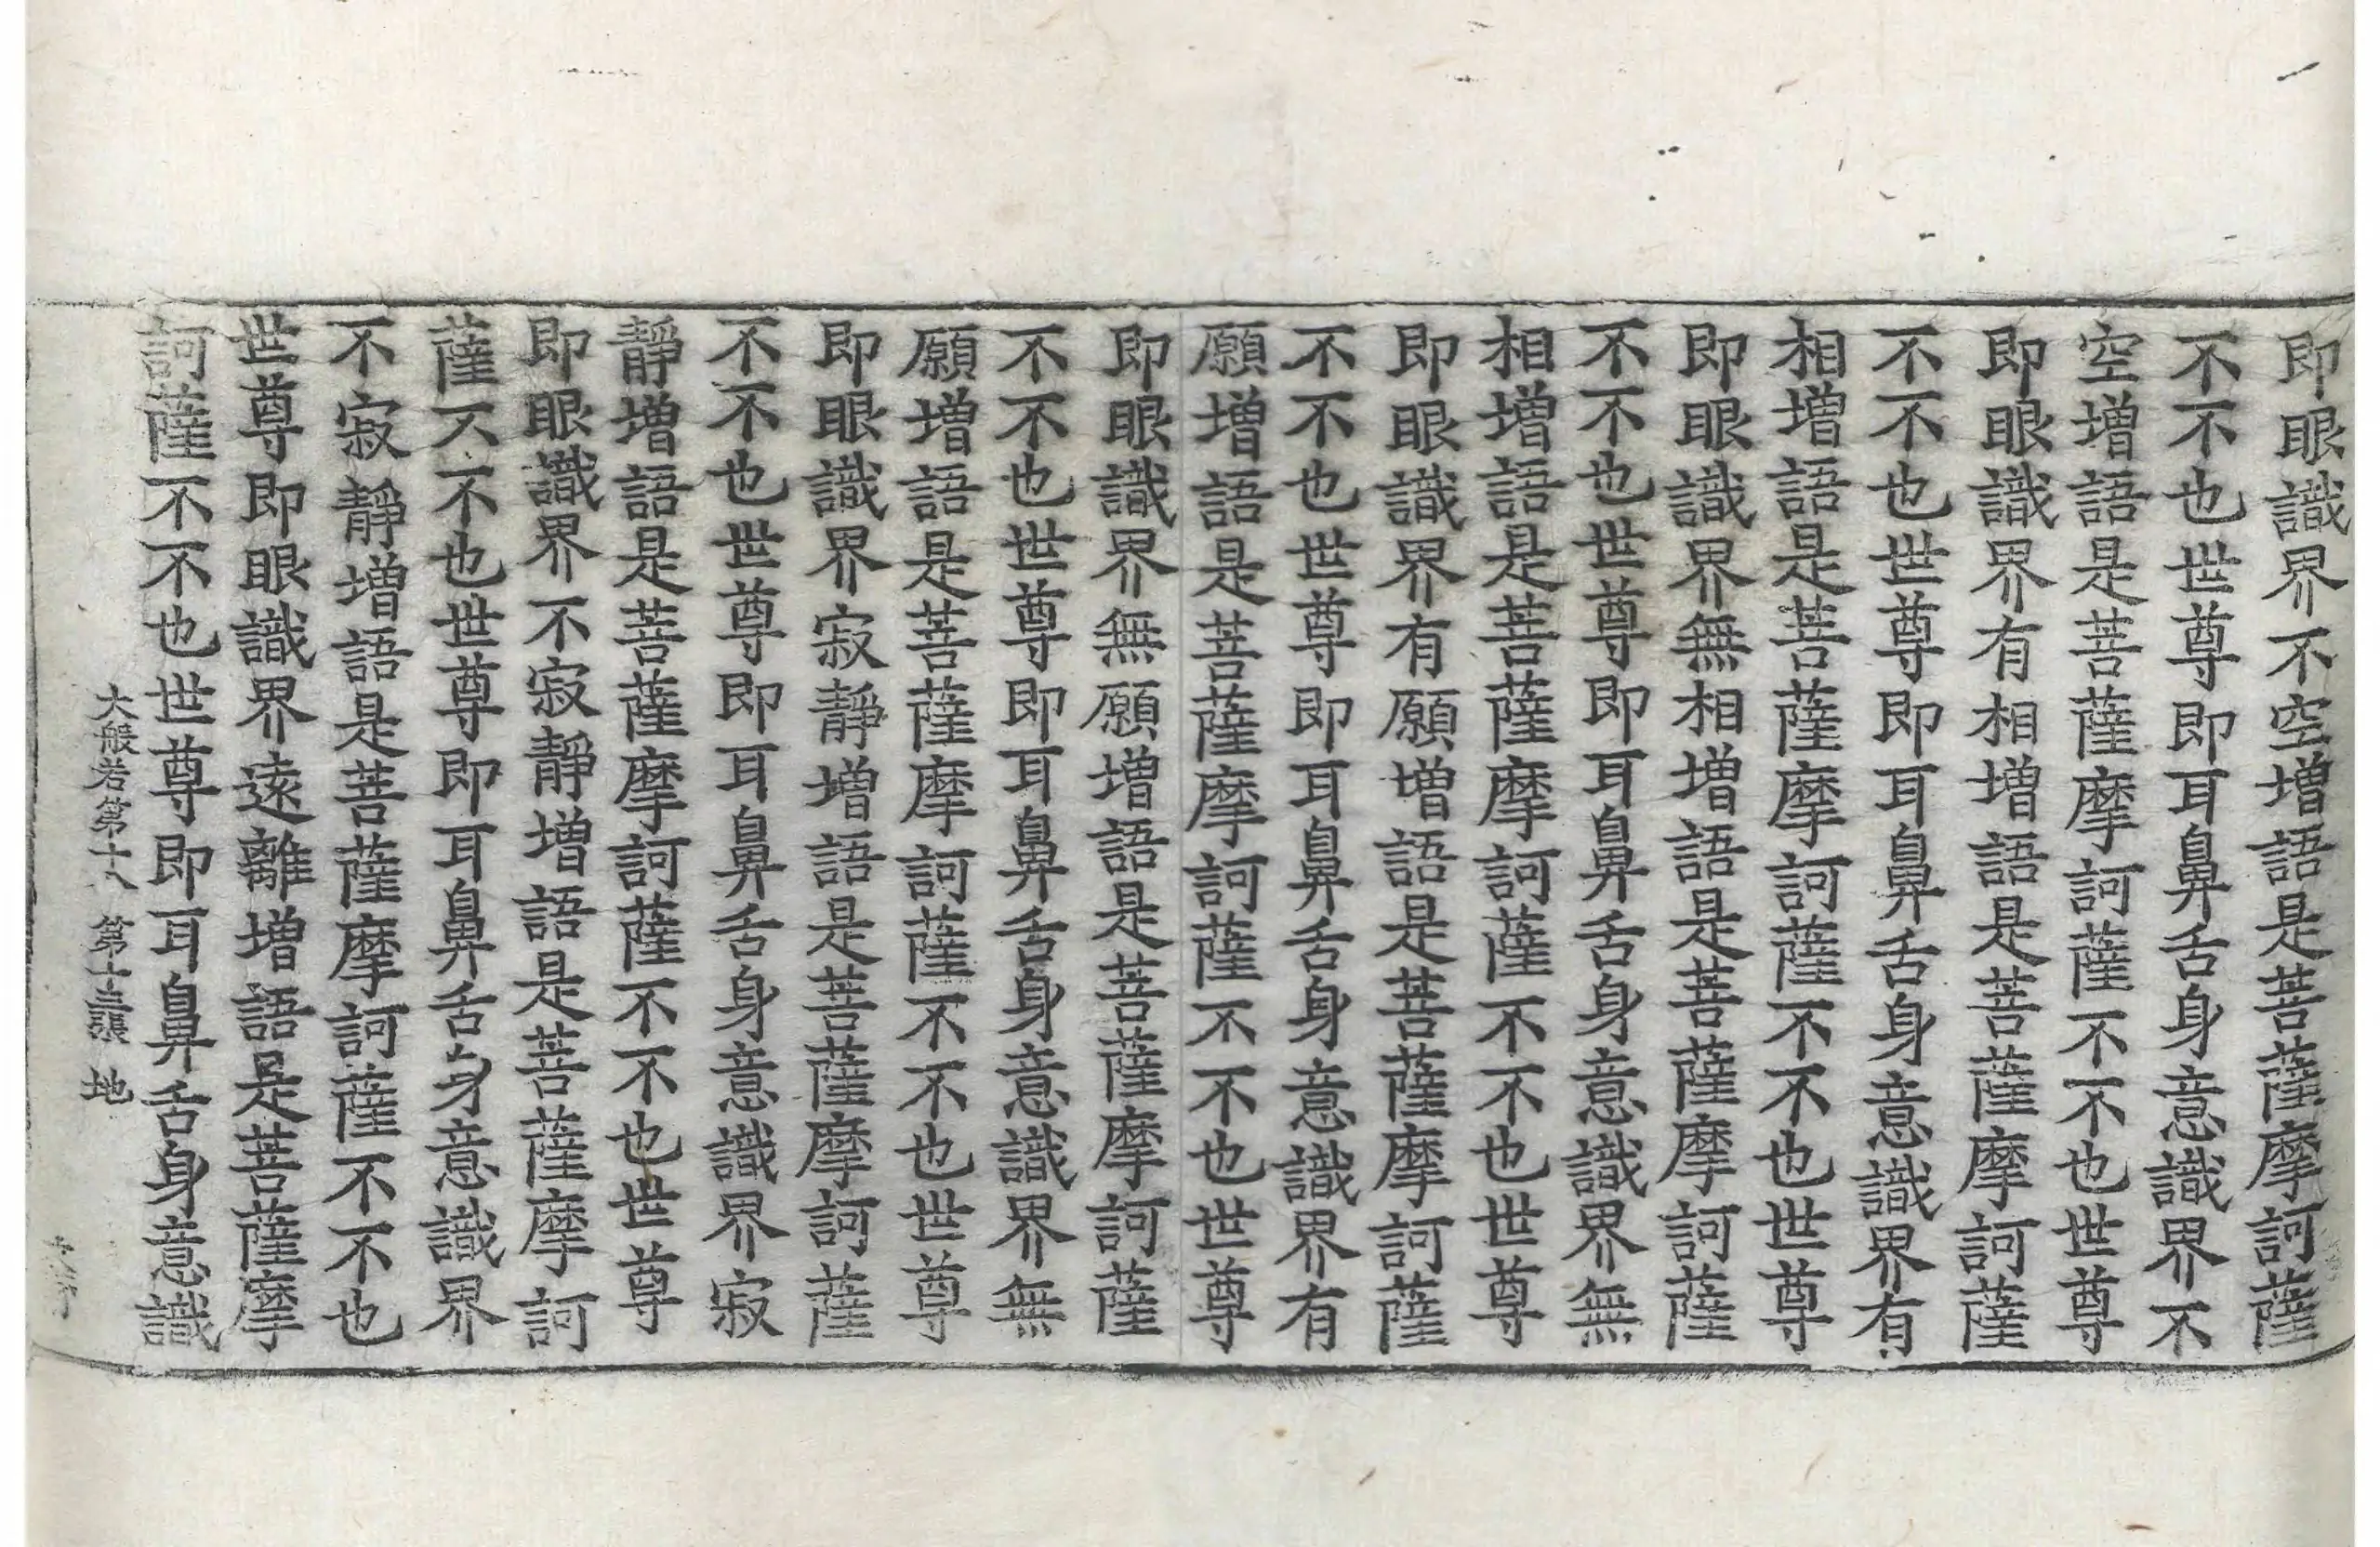 即眼識界不空增語是菩薩摩訶薩
不不也世尊即耳鼻舌身意識界不
空增語是菩薩摩訶薩不不也世尊
即眼識界有相增語是菩薩摩訶薩
不不也世尊即耳鼻舌身意識界有
相增語是菩薩摩訶薩不不也世尊
即眼識界無相增語是菩薩摩訶薩
不不也世尊即耳鼻舌身意識界無
相增語是菩薩摩訶薩不不也世尊
即眼識界有願增語是菩薩摩訶薩
不不也世尊即耳鼻舌身意識界有
願增語是菩薩摩訶薩不不也世尊
即眼識界無願增語是菩薩摩訶薩
不不也世尊即耳鼻舌身意識界無
願增語是菩薩摩訶薩不不也世尊
即眼識界寂靜增語是菩薩摩訶薩
不不也世尊即耳鼻舌身意識界寂
靜增語是菩薩摩訶薩不不也世尊
即眼識界不寂靜增語是菩薩摩訶
薩不不也世尊即耳鼻舌身意識界
不寂靜增語是菩薩摩訶薩不不也
世尊即眼識界遠離增語是菩薩摩
訶薩不不也世尊即耳鼻舌身意識
大般若第十八 第十三張 地